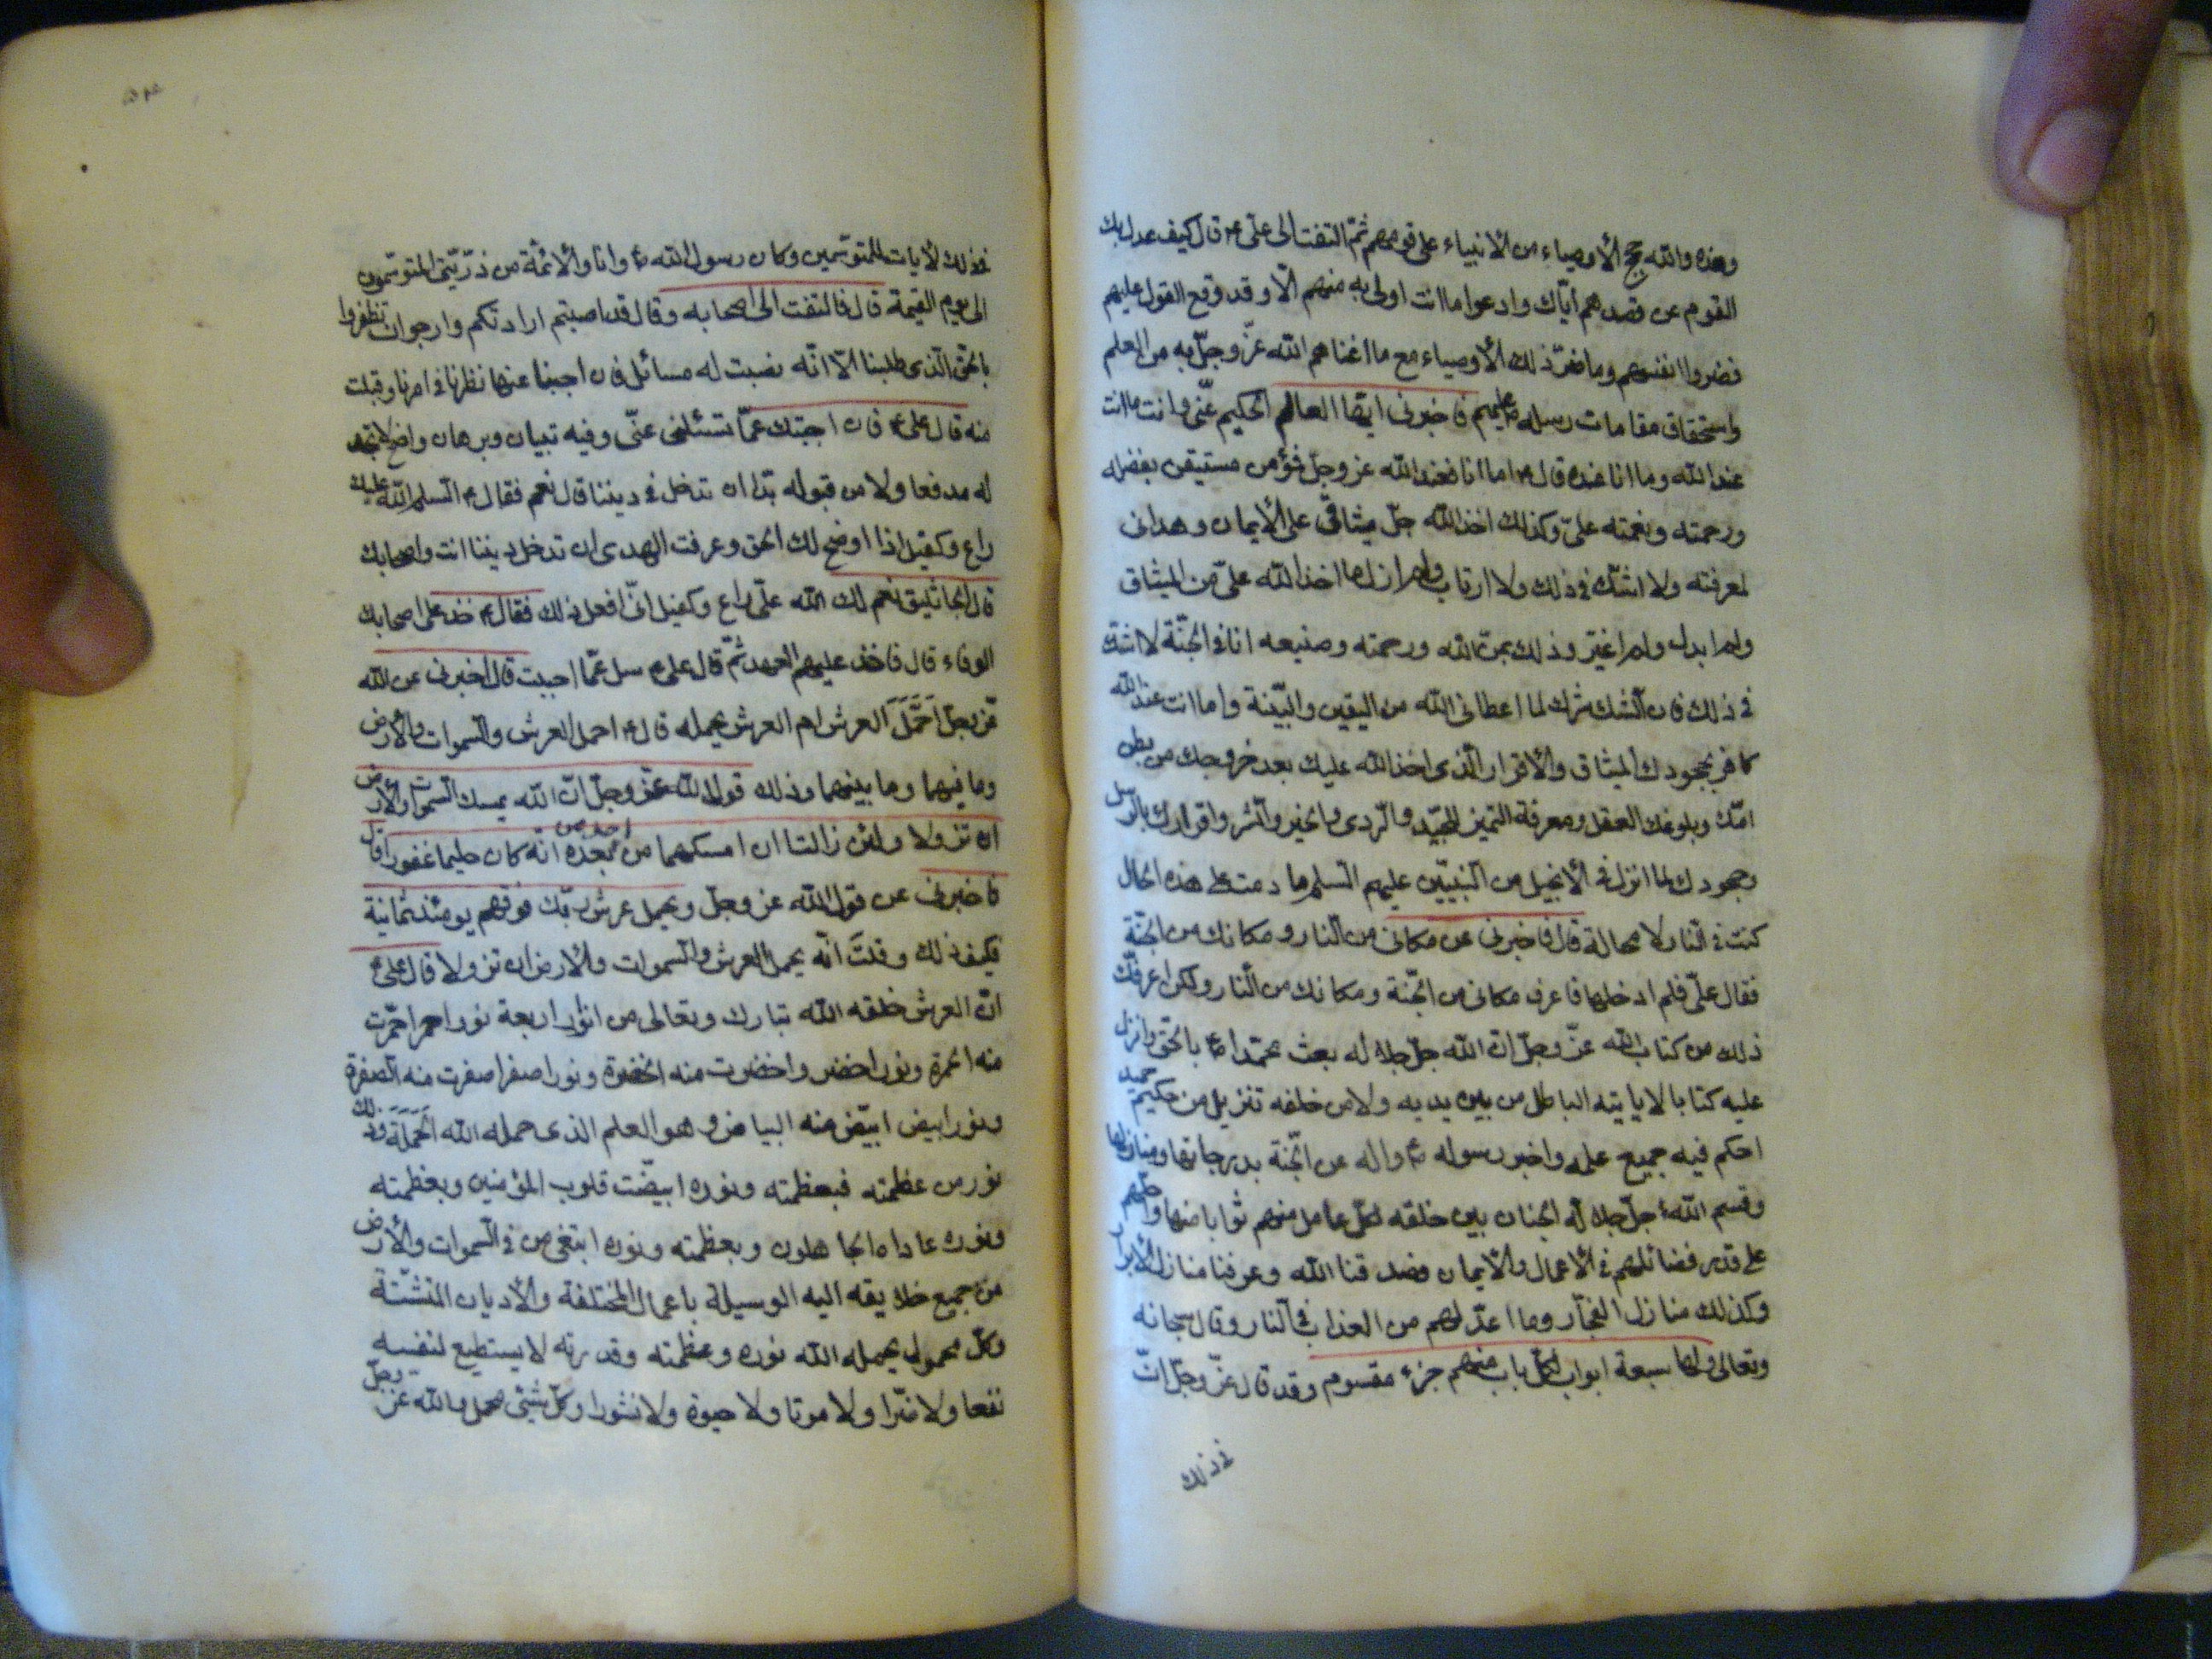 وهذه والله حجج الأوصياء من الأنبياء على قومهم ثمّ التفت الى علىّ ع م قال كيف عدل بك
القوم عن قصدهم ايّاك وادعوا ما انت اولى به منهم الّا وقد وقع القول عليهم
فضروا انفسهم وما ضرّ ذلك الأوصياء مع ما اغناهم الله عزّ وجلّ به من العلم
واستحقاق مقامات رسله ع عليهم فاخبرنى ايّها العالم الحكيم عنّى وانت ما انت
عند الله وما انا عنده قال ع م اما انا فعند الله عز وجلّ مؤمن مستيقن بفضله
ورحمته ونعمته علىّ وكذلك اخذ الله جلّ ميثاقى على الأيمان وهدانى
لمعرفته ولا اشك فى ذلك ولا ارتاب ولم ازل لما اخذ الله علىّ من الميثاق
ولم ابدل ولم اغيّر وذلك بمنّ الله ورحمته وصنيعه انا فى الجنّة لا اشك
فى ذلك فان الشك شرك لما اعطانى الله من اليقين والبيّنة واما انت عند الله
كافر بجحودك الميثاق والأقرار الّذى اخذ الله عليك بعد خروجك من بطن
امّك وبلوغك العقل ومعرفة التميز للجيّد والردى والخير والشر واقرارك بالرسل
وجحودك لما انزل فى الأنجيل من النبيّين عليهم السلم ما دمت على هذه الحال
كنت فى النار لا محالة قال فاخبرنى عن مكانى من النار ومكانك من الجنّة
فقال علىّ فلم ادخلها فاعرف مكانى من الجنّة ومكانك من النار ولكن اعرفك
ذلك من كتاب الله عزّ وجلّ انّ الله جلّ جلاله بعث محمّدا ص بالحقّ وانزل
عليه كتابا لا ياتيه الباطل من بين يديه ولا من خلفه تنزيل من حكيم حميد
احكم فيه جميع علمه واخبر رسوله ص واله عن الجنّة بدرجاتها ومنازلها
وقسم الله جلّ جلاله الجنان بين خلقه لكلّ عامل منهم ثوابا منها واحلّهم
على قدر فضائلهم فى الأعمال والأيمان فصدقنا الله وعرفنا منازل الأبرار
وكذلك منازل الفجّار وما اعدّ لهم من العذاب فى النار وقال سبحانه
وتعالى ولها سبعة ابواب لكلّ باب منهم جزء مقسوم وقد قال عزّ وجلّ انّ
فى ذلك
فى ذلك لأيات للمتوسّمين وكان رسول الله ص وانا والأئمّة من ذرّيّتى المتوسّمون
الى يوم القيمة قال فالتفت الى اصحابه وقال قد اصبتم ارادتكم وارجوان تظفروا
بالحقّ الّذى طلبنا الّا انّه نصبت له مسائل فان اجبنا عنها نظرنا فى امرنا وقبلت
منه قال علىّ ع فان اجبتك عمّا تسئلنى عنّى وفيه تبيان وبرهان واضح لا تجد
له مدفعا ولا من قبوله بدّا ان تدخل فى ديننا قال نعم فقال ع م السلم الله عليك
راع وكفيل اذا اوضح لك الحق وعرفت الهدى ان تدخل ديننا انت واصحابك
قال الجاثليق نعم لك الله علىّ راع وكفيل انّى افعل ذلك فقال ع م خذ على اصحابك
الوفاء قال فاخذ عليهم العهد ثمّ قال على ع م سل عمّا احببت قال اخبرنى عن الله
عزّ وجلّ احَمَلَ العرش ام العرش يحمله قال ع م احمل العرش والسموات والأرض
وما فيهما وما بينهما وذلك قول الله عزّ وجلّ انّ الله يمسك السموات والأرض
ان تزولا ولئن زالتا ان امسكهما من احد من بعده انّه كان حليما غفورا قال
فاخبرنى عن قول الله عز وجلّ ويحمل عرش ربّك فوقهم يومئذ ثمانية
فكيف ذلك وقلت انّه يحمل العرش والسموات والأرض ان تزولا قال على ع
انّ العرش خلقه الله تبارك وتعالى من انوار اربعة نور احمر احمّرت
منه الحمرة ونور اخضر واخضرت منه الخضرة ونور اصفر اصفرت منه الصفرة
ونور ابيض ابيّض منه البياض وهو العلم الذى حمله الله الحَمَلَة وذلك
نور من عظمته فبعظمته ونوره ابيضّت قلوب المؤمنين وبعظمته
ونوره عاداه الجاهلون وبعظمته ونوره ابتغى من فى السموات والأرض
من جميع خلايقه اليه الوسيلة باعمال المختلفة والأديان المتشتّتة
وكلّ محمول يحمله الله نوره وعظمته وقدرته لا يستطيع لنفسه
نفعا ولا ضرّا ولا موتا ولا حيوة ولا نشورا وكلّ شئ محمل والله عزّ وجلّ